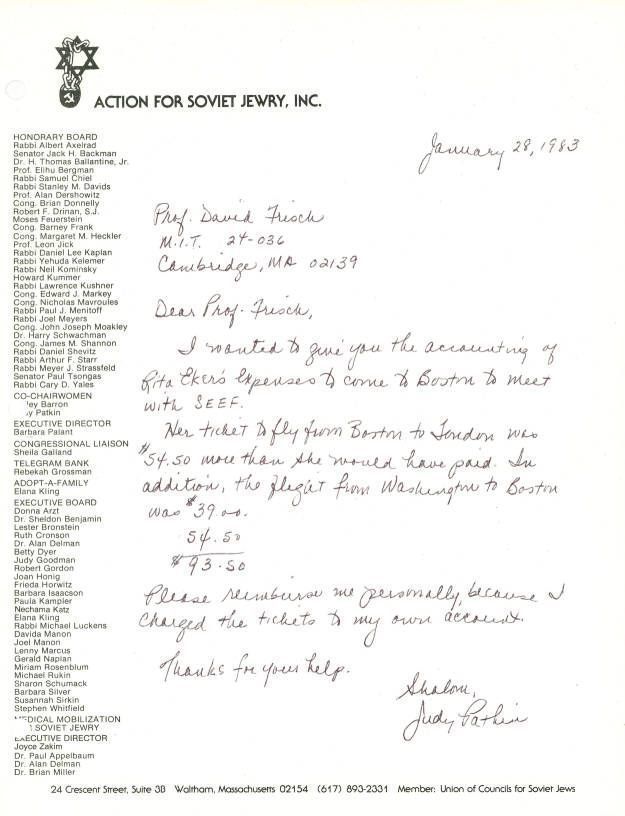 ACTION FOR SOVIET JEWRY, INC.
HONORARY BOARD
Rabbi Albert Axelrad
Senator Jack H. Backman
Dr. H. Thomas Ballantine, Jr.
Prof. Elihu Bergman
Rabbi Samuel Chiel
Rabbi Stanley M. Davids
Prof. Alan Dershowitz
Cong. Brian Donnelly
Robert F. Drinan, S.J.
Moses Feuerstein
Cong. Barney Frank
Cong. Margaret M. Heckler
Prof. Leon Jick
Rabbi Daniel Lee Kaplan
Rabbi Yehuda Kelemer
Rabbi Neil Kominsky
Howard Kummer
Rabbi Lawrence Kushner
Cong. Edward J. Markey
Cong. Nicholas Mavroules
Rabbi Paul J. Menitoff
Rabbi Joel Meyers
Cong. John Joseph Moakley
Dr. Harry Schwachman
Cong. James M. Shannon
Rabbi Daniel Shevitz
Rabbi Arthur F. Starr
Rabbi Meyer J. Strassfeld
Senator Paul Tsongas
Rabbi Cary D. Yales
CO-CHAIRWOMEN
ey Barron
y Patkin
EXECUTIVE DIRECTOR
Barbara Palant
CONGRESSIONAL LIAISON
Sheila Galland
TELEGRAM BANK
Rebekah Grossman
ADOPT-A-FAMILY
Elana Kling
EXECUTIVE BOARD
Donna Arzt
Dr. Sheldon Benjamin
Lester Bronstein
Ruth Cronson
Dr. Alan Delman
Betty Dyer
Judy Goodman
Robert Gordon
Joan Honig
Frieda Horwitz
Barbara Isaacson
Paula Kampler
Nechama Katz
Elana Kling
Rabbi Michael Luckens
Davida Manon
Joel Manon
Lenny Marcus
Gerald Napian
Miriam Rosenblum
Michael Rukin
Sharon Schumack
Barbara Silver
Susannah Sirkin
Stephen Whitfield
DICAL MOBILIZATION
SOVIET JEWRY
EXECUTIVE DIRECTOR
Joyce Zakim
Dr. Paul Appelbaum
Dr. Alan Delman
Dr. Brian Miller
January 28, 1983
Prof. David Frisch
M.I.T. 24-036
Cambridge, MA 02139
Dear Prof. Frisch,
I wanted to give you the accounting of
Rita Eker's expenses to come to Boston to meet
with SEEF.
Her ticket to fly from Boston to London was
$54.50 more than she would have paid. In
addition, the flight from Washington to Boston
was $39.00.
54.50
$93.50
Please reimburse me personally, because I
charged the tickets to my own account.
Thanks for your help.
Shalom,
Judy Patkin
24 Crescent Street, Suite 3B Waltham, Massachusetts 02154 (617) 893-2331 Member: Union of Councils for Soviet Jews